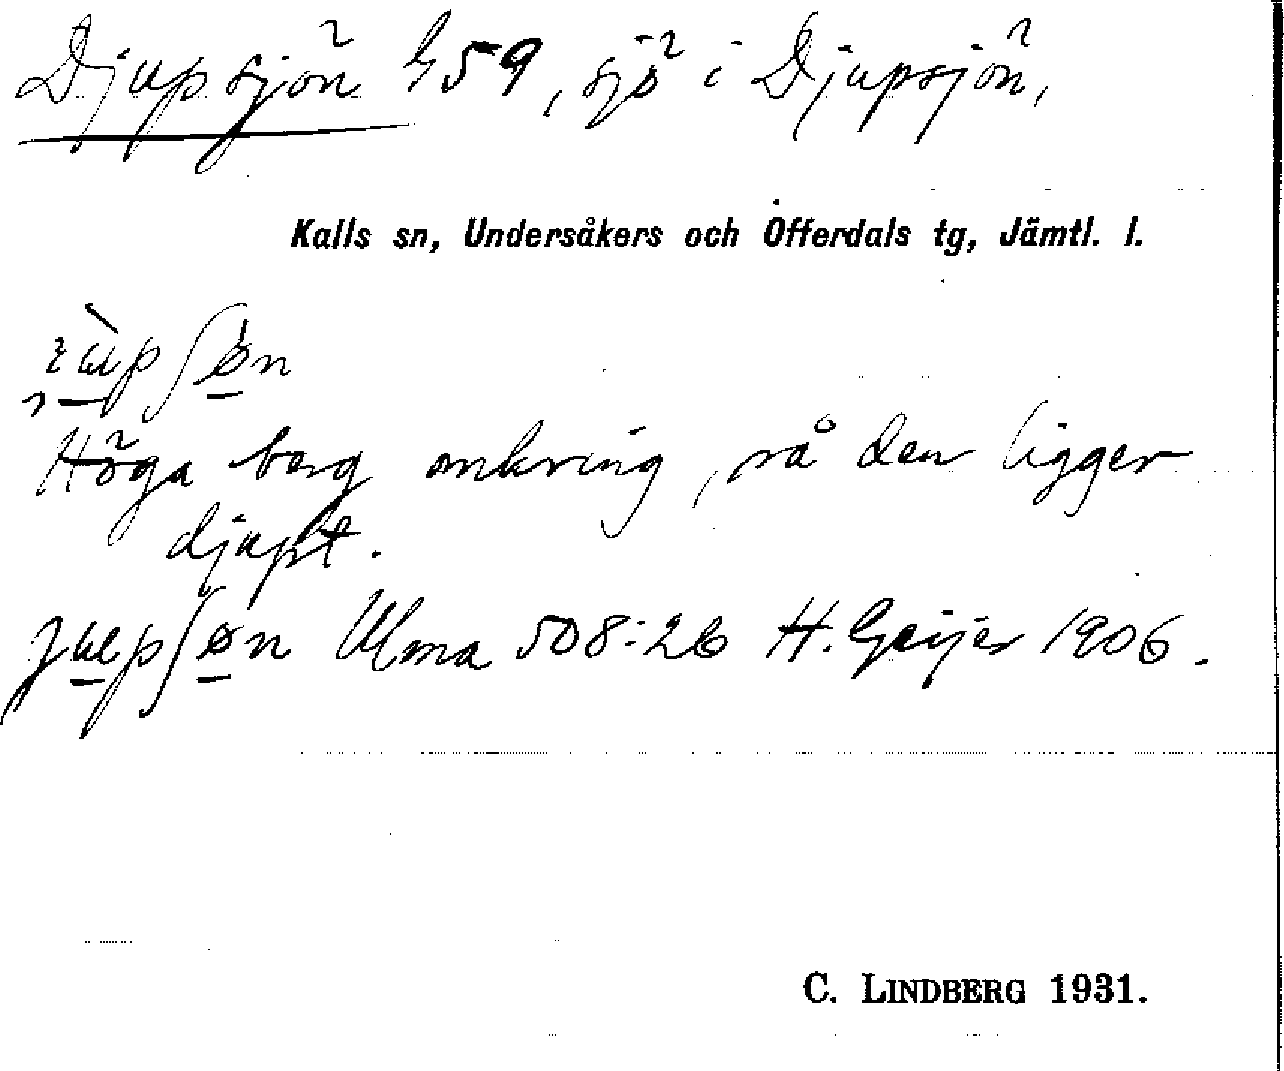 Djupsjön G59, sjö i Djupsjön,
Kalls sn, Undersåkers och Offerdals tg, Jämtl. l.
Höga berg omkring, så den ligger
djupt.
Ulma 508:26 H. Geijer 1906.
C. LINDBERG 1931.